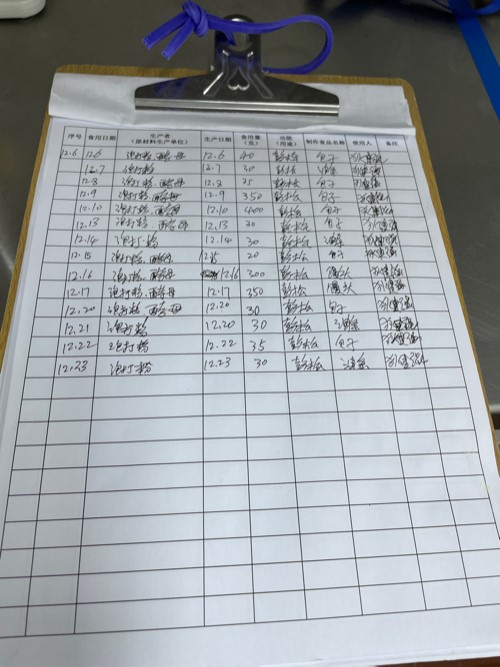 序号 食用日期 生产者（原材料生产单位） 生产日期 食用量（克） 功能（用途） 制作食品名称 使用人 备注
12.6 12.6 泡打粉、酵母 12.6 40 膨松 包子
12.7 泡打粉 12.7 30 膨松 油条
12.8 泡打粉、酵母 12.8 35 膨松 包子
12.9 泡打粉、酵母 12.9 350 膨松 包子
12.10 泡打粉、酵母 12.10 400 膨松 包子
12.13 泡打粉、酵母 12.13 30 膨松 包子
12.14 泡打粉 12.14 30 膨松 油条
12.15 泡打粉、酵母 12.15 20 膨松 包子
12.16 泡打粉、酵母 12.16 300 膨松 馒头
12.17 泡打粉、酵母 12.17 350 膨松 馒头
12.20 泡打粉、酵母 12.20 30 膨松 包子
12.21 泡打粉 12.20 30 膨松 油条
12.22 泡打粉 12.22 35 膨松 包子
12.23 泡打粉 12.23 30 膨松 油条